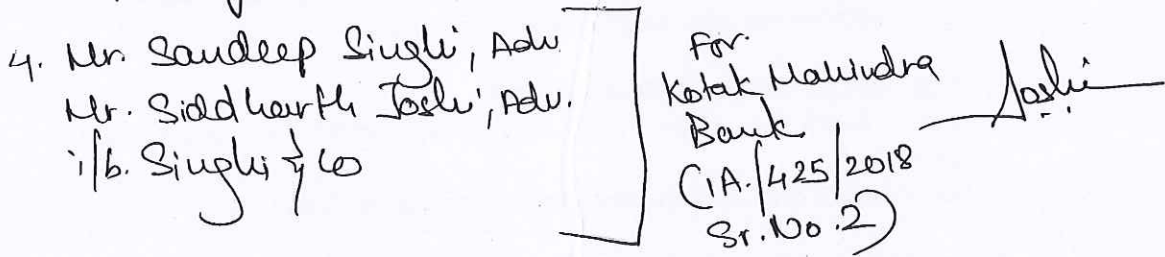 4. Mr. Sandeep Singhi, Adv
Mr. Siddharth Joshi, Adv.
i/b. Singhi & Co
For
Kotak Mahindra
Bank
(IA./425/2018
Sr. No. 2)
Joshi